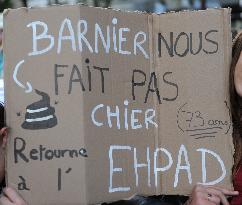 BARNIER NOUS
FAIT PAS
CHIER
(73 ans)
Retourne
à l' EHPAD